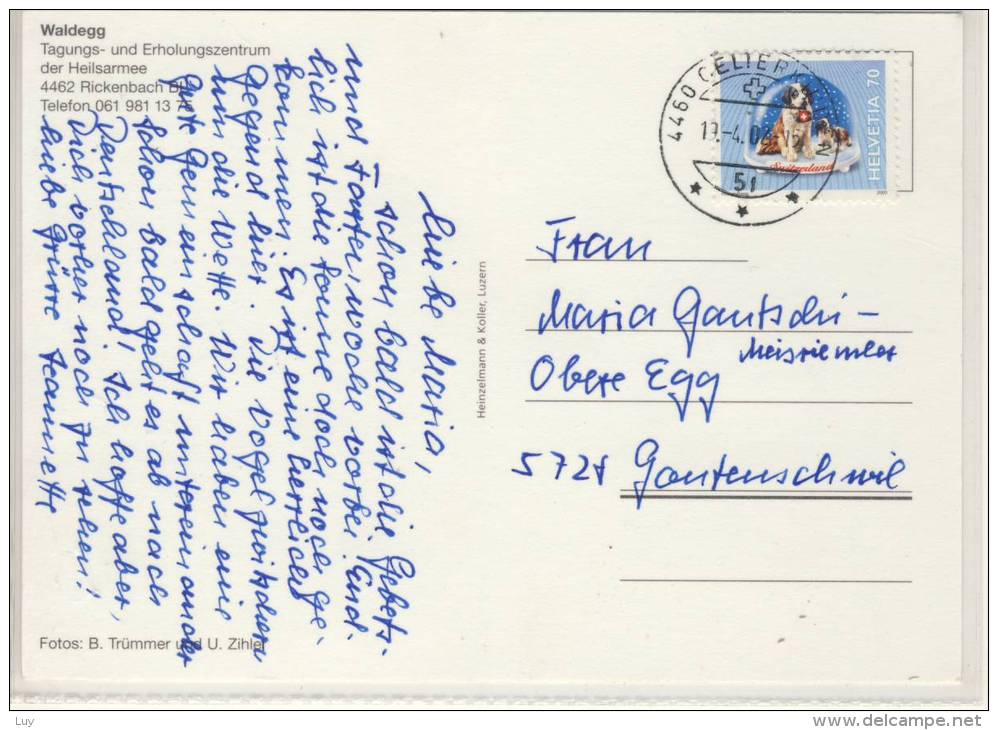 Waldegg
Tagungs- und Erholungszentrum
der Heilsarmee
4462 Rickenbach BL
Telefon 061 981 13 75
Liebe Maria,
schon bald ist die Gebets-
und Fastenwoche vorbei. End-
lich ist die Sonne doch noch ge-
kommen. Es ist eine herrliche
Gegend hier. Die Vögel zwitschern
um die Wette. Wir haben eine
gute Gemeinschaft untereinander
Schon bald geht es ab nach
Deutschland! Ich hoffe aber,
Dich vorher noch zu sehen!
Liebe Grüsse Jeannette
Fotos: B. Trümmer und U. Zihler
Heinzelmann & Koller, Luzern
4460 GELTERKINDEN
19.-4.0
51
Switzerland
HELVETIA 70
Frau
Maria Gautschi-
Meisriemler
Obere Egg
5728 Gontenschwil
Luy
delcampe.net